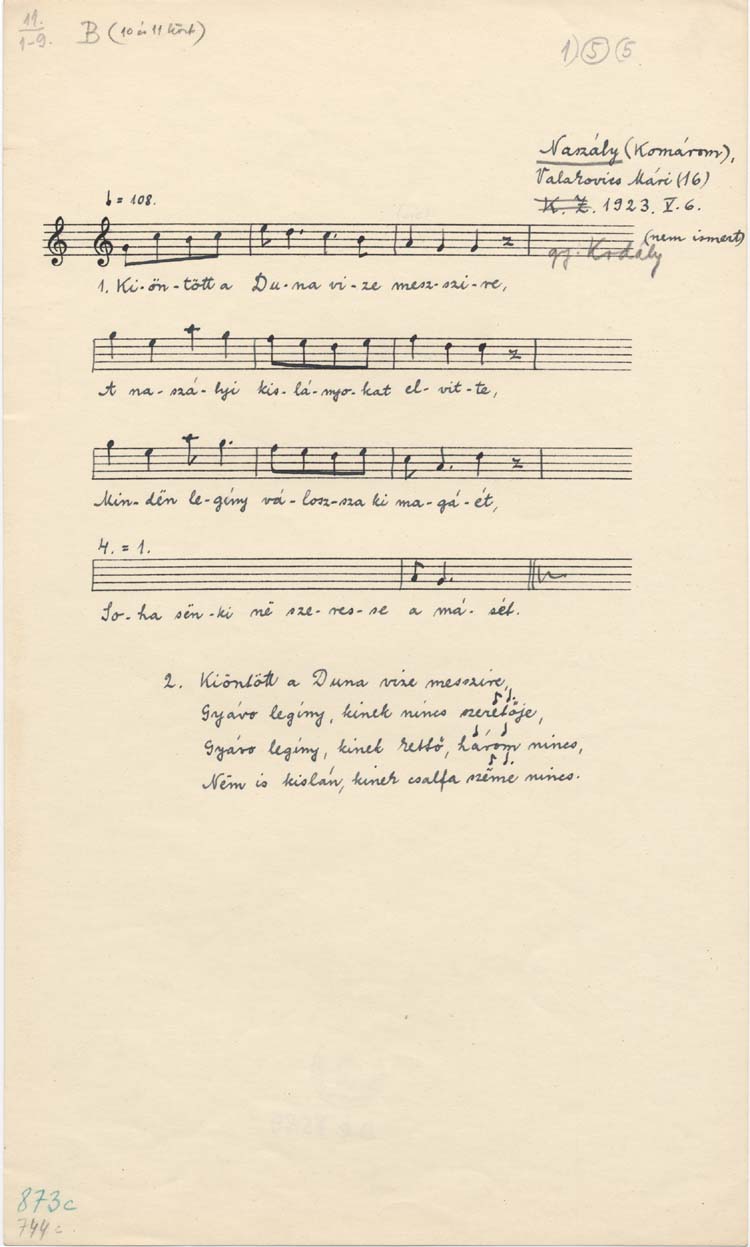 11.
1-9.
B (10 és 11 közt)
1) 5 (5
Naszály (Komárom),
Valakovics Mári (16)
K. Z. 1923. V. 6.
(nem ismert)
gy. Kodály
= 108.
1. Ki-ön-tött a Du-na vi-ze mesz-szi-re,
A na-szá-lyi kis-lá-nyo-kat el-vit-te,
Min-dën le-gény vá-losz-sza ki ma-gá-ét,
4. = 1.
So-ha sën-ki në sze-res-se a má-sét.
2. Kiöntött a Duna vize messzire,
Gyávo legíny, kinek nincs szeretője,
Gyávo legíny, kinek kettő, három nincs,
Nëm is kislán, kinek csalfa szëme nincs.
873c
744c.